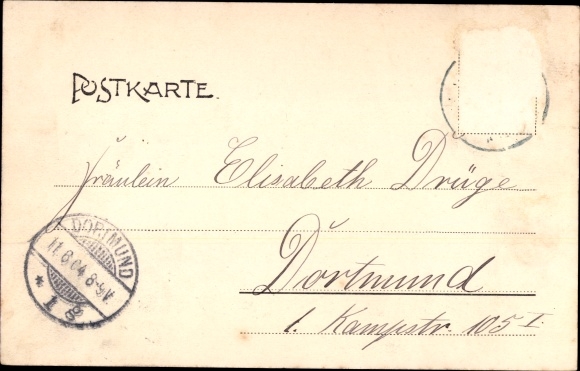 POSTKARTE.
Fräulein Elisabeth Drüge
Dortmund
1. Kampstr. 105 I.
DORTMUND
11.6.04.8-9V.
* 1 g